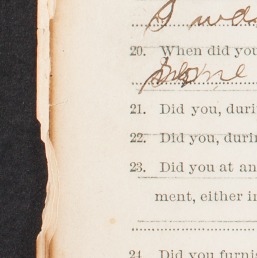 20. When did you
21. Did you, duri
22. Did you, durin
23. Did you at an
ment, either in
24. Did you furnis